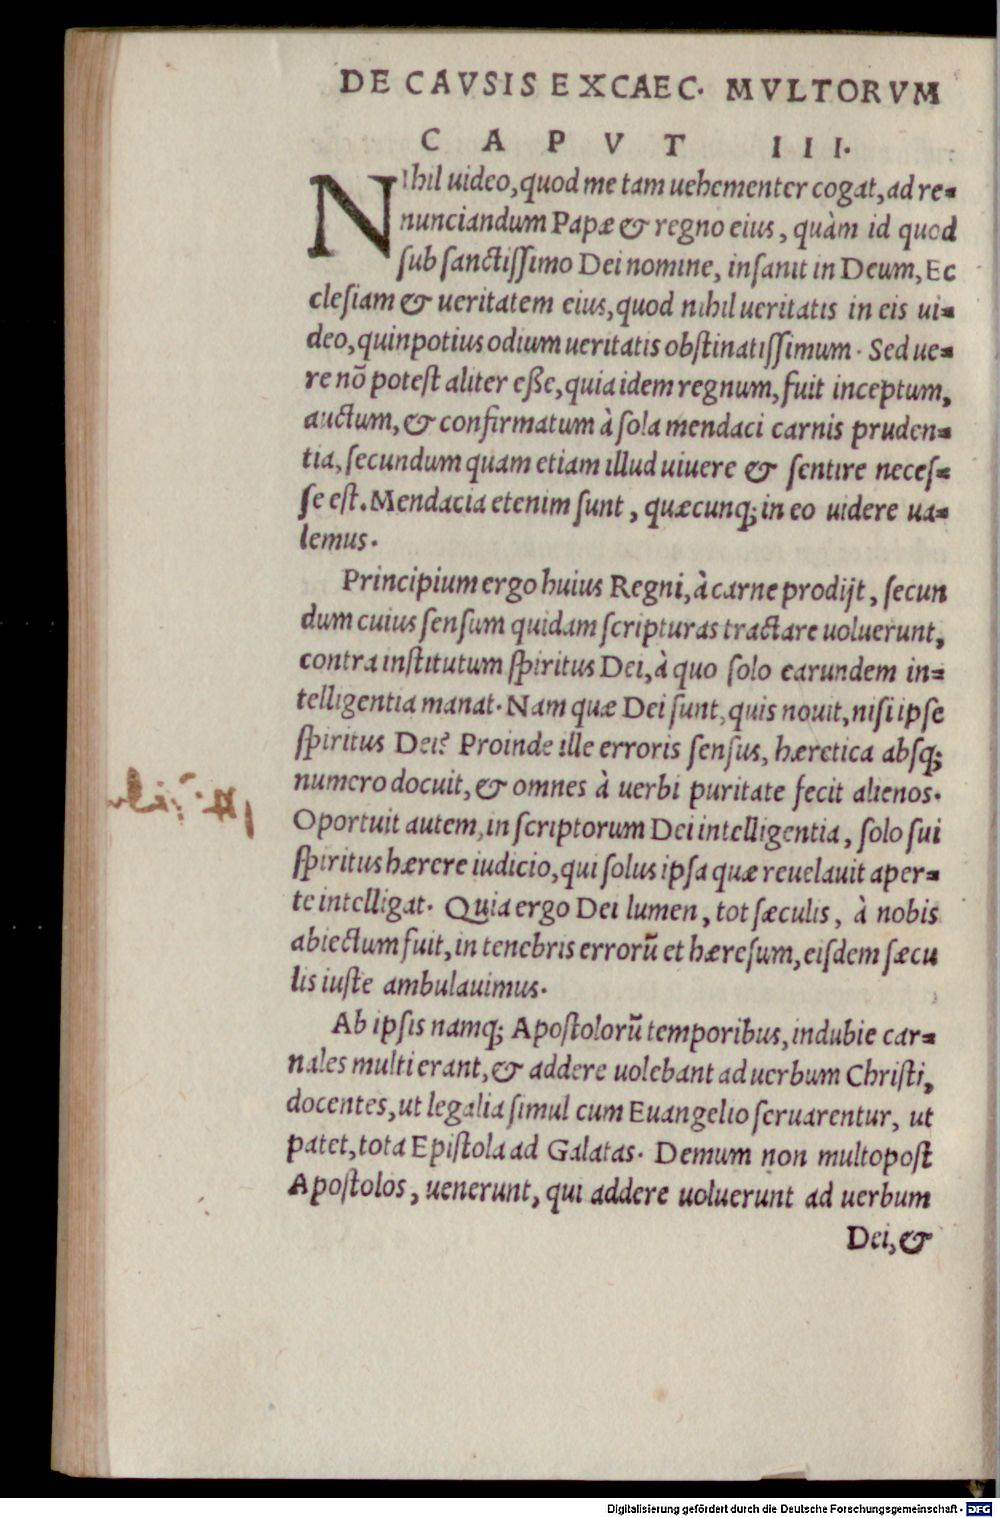 DE CAVSIS EXCAEC. MVLTORVM
CAPVT III.
Nihil uideo, quod me tam uehementer cogat, ad re-
nunciandum Papæ & regno eius, quàm id quod
sub sanctissimo Dei nomine, insanit in Deum, Ec
clesiam & ueritatem eius, quod nihil ueritatis in eis ui-
deo, quinpotius odium ueritatis obstinatissimum. Sed ue-
re nõ potest aliter esse, quia idem regnum, fuit inceptum,
auctum, & confirmatum à sola mendaci carnis pruden-
tia, secundum quam etiam illud uiuere & sentire neces-
se est. Mendacia etenim sunt, quæcunq; in eo uidere ua-
lemus.
Principium ergo huius Regni, à carne prodijt, secun
dum cuius sensum quidam scripturas tractare uoluerunt,
contra institutum spiritus Dei, à quo solo earundem in-
telligentia manat. Nam quæ Dei sunt, quis nouit, nisi ipse
spiritus Dei? Proinde ille erroris sensus, hæretica absq;
numero docuit, & omnes à uerbi puritate fecit alienos.
Oportuit autem, in scriptorum Dei intelligentia, solo sui
spiritus hærere iudicio, qui solus ipsa quæ reuelauit aper-
te intelligat. Quia ergo Dei lumen, tot sæculis, à nobis
abiectum fuit, in tenebris errorũ et hæresum, eisdem sæcu
lis iuste ambulauimus.
Ab ipsis namq; Apostolorũ temporibus, indubie car-
nales multi erant, & addere uolebant ad uerbum Christi,
docentes, ut legalia simul cum Euangelio seruarentur, ut
patet, tota Epistola ad Galatas. Demum non multopost
Apostolos, uenerunt, qui addere uoluerunt ad uerbum
Dei, &
Digitalisierung gefördert durch die Deutsche Forschungsgemeinschaft - DFG